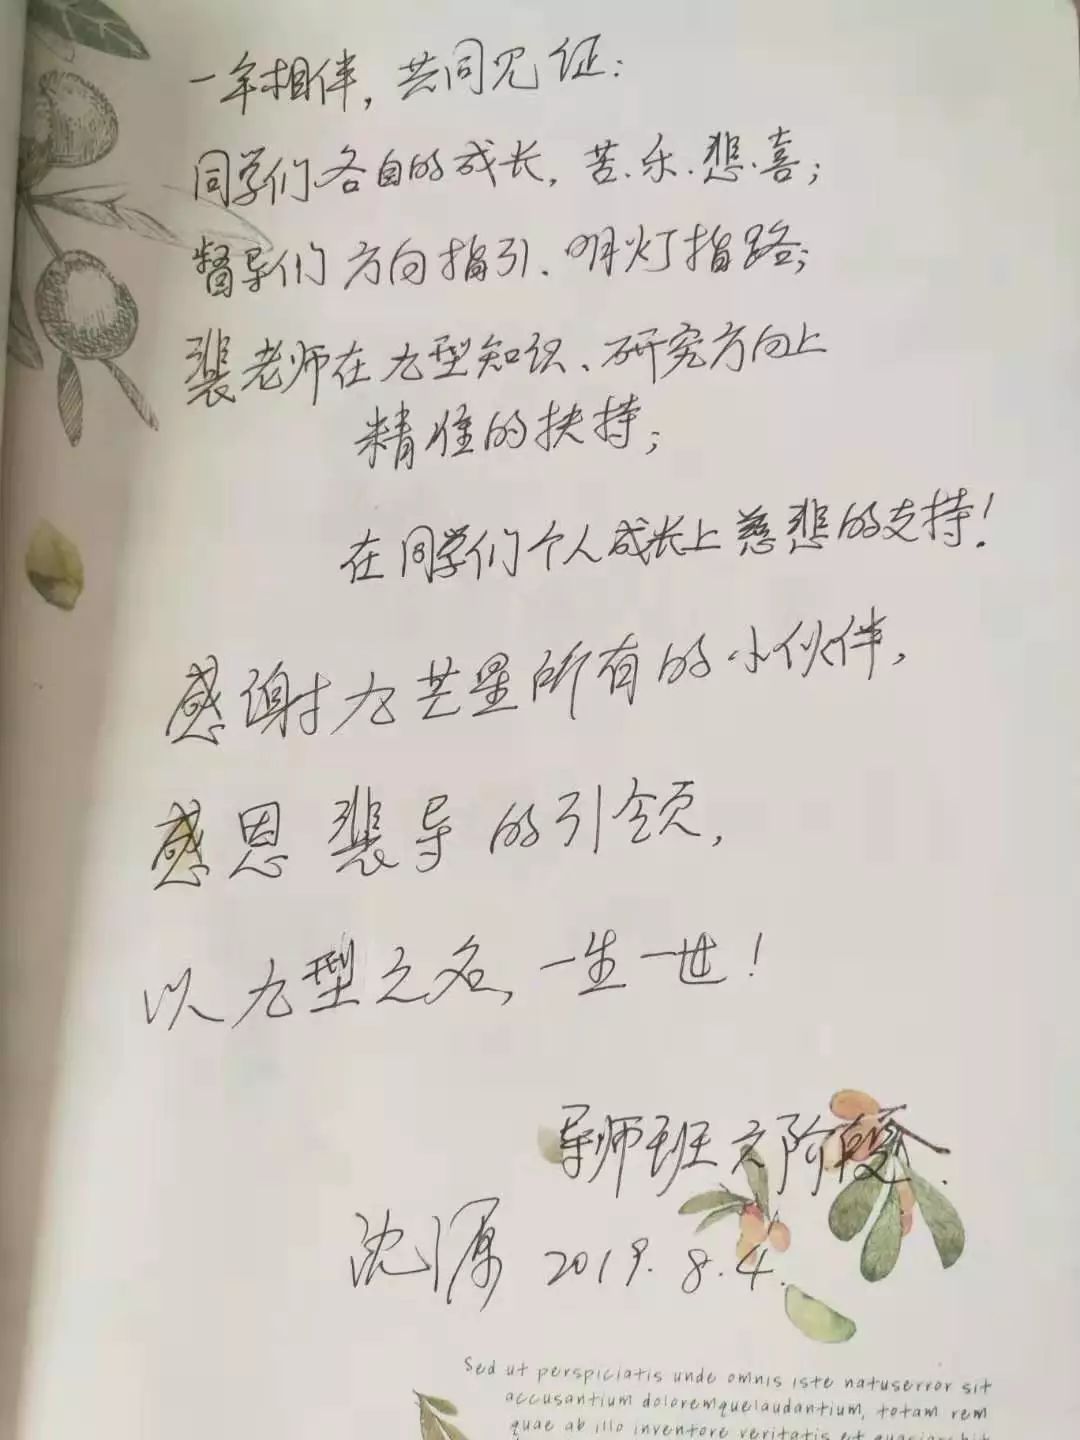 一年相伴，共同见证：
同学们各自的成长，苦、乐、悲、喜；
督导们方向指引、明灯指路；
裴老师在九型知识、研究方向上
精准的扶持；
在同学们个人成长上慈悲的支持！
感谢九芒星所有的小伙伴，
感恩裴导的引领，
以九型之名，一生一世！
导师班六阶段.
沈源 2019.8.4.
Sed ut perspiciatis unde omnis iste natuserror sit
accusantium doloremquelaudantium, totam rem
quae ab illo inventore veritatis et